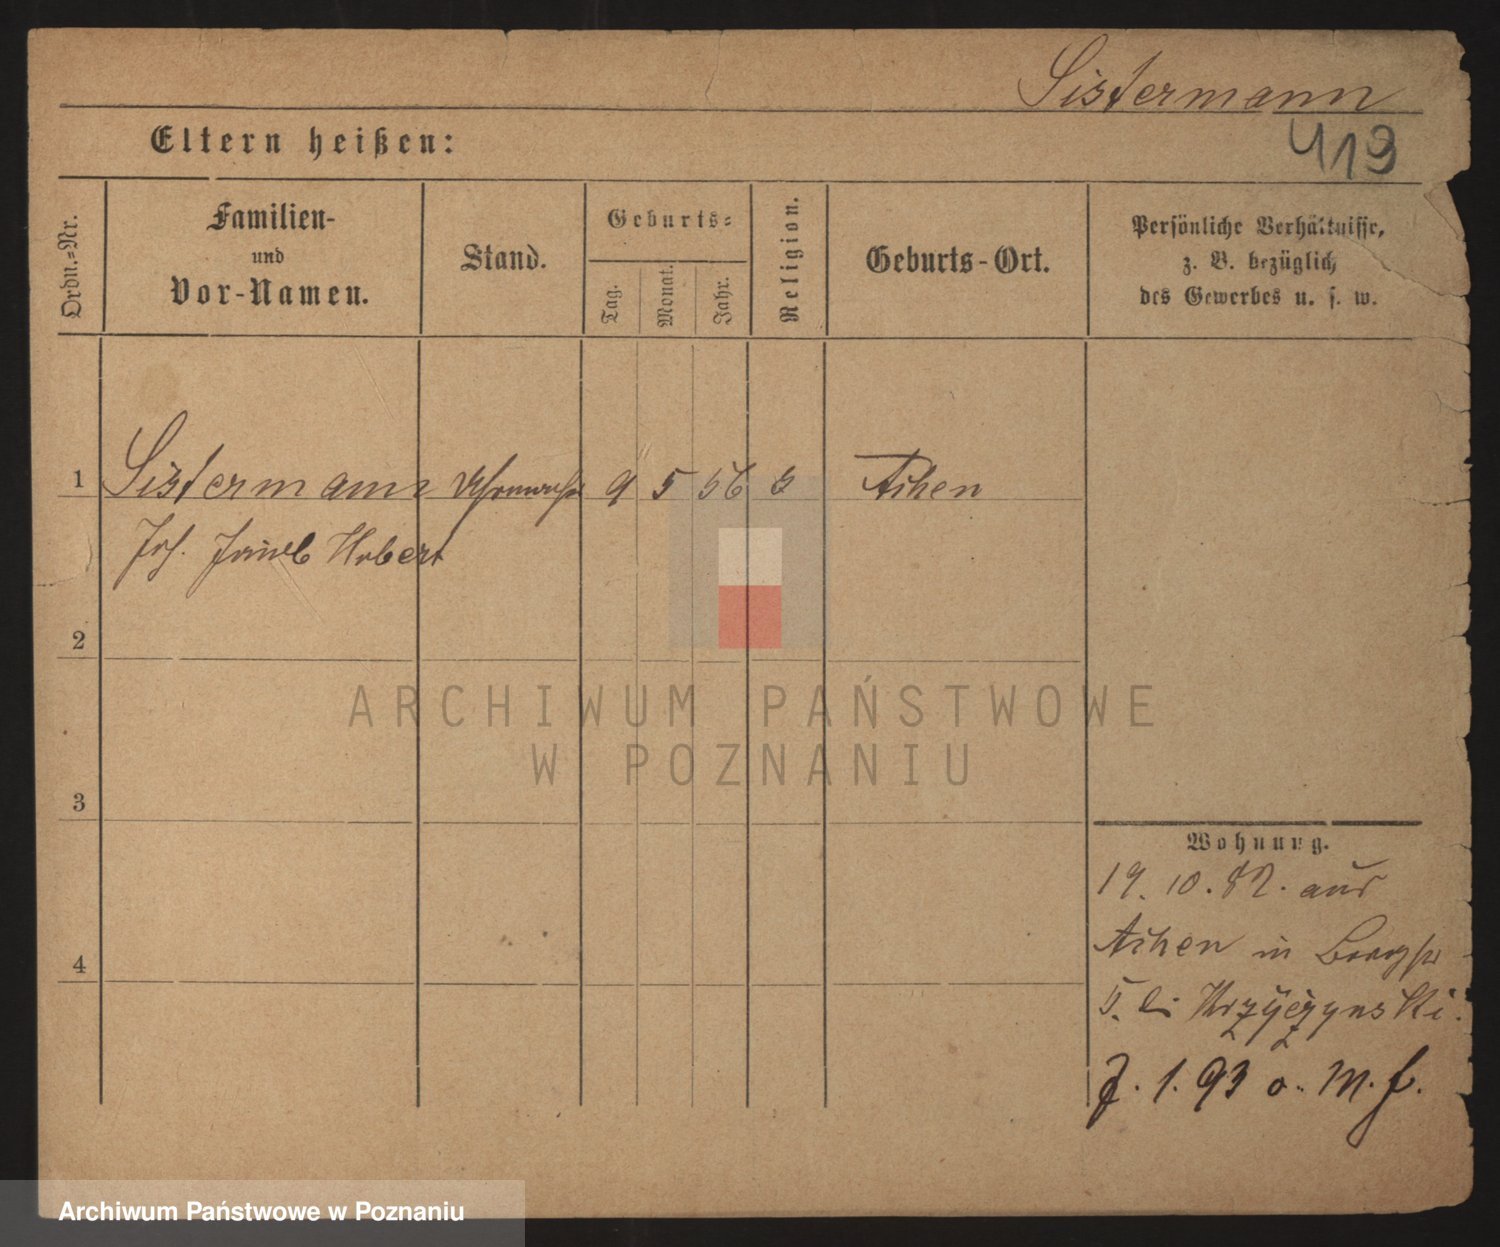 Sistermann
419
Eltern heißen:
Ordn.=Nr.
Familien-
und
Vor-Namen.
Stand.
Geburts=
Tag.
Monat.
Jahr.
Religion.
Geburts-Ort.
Persönliche Verhältnisse,
z. B. bezüglich
des Gewerbes u. s. w.
1 Sistermann 9 5 56 Aachen
Jos. Jacob Hubert
2
3
4
Wohnung.
19. 10. 82. aus
Aachen in
5. bei
J. 1. 93 o. M. f.
ARCHIWUM PAŃSTWOWE
W POZNANIU
Archiwum Państwowe w Poznaniu